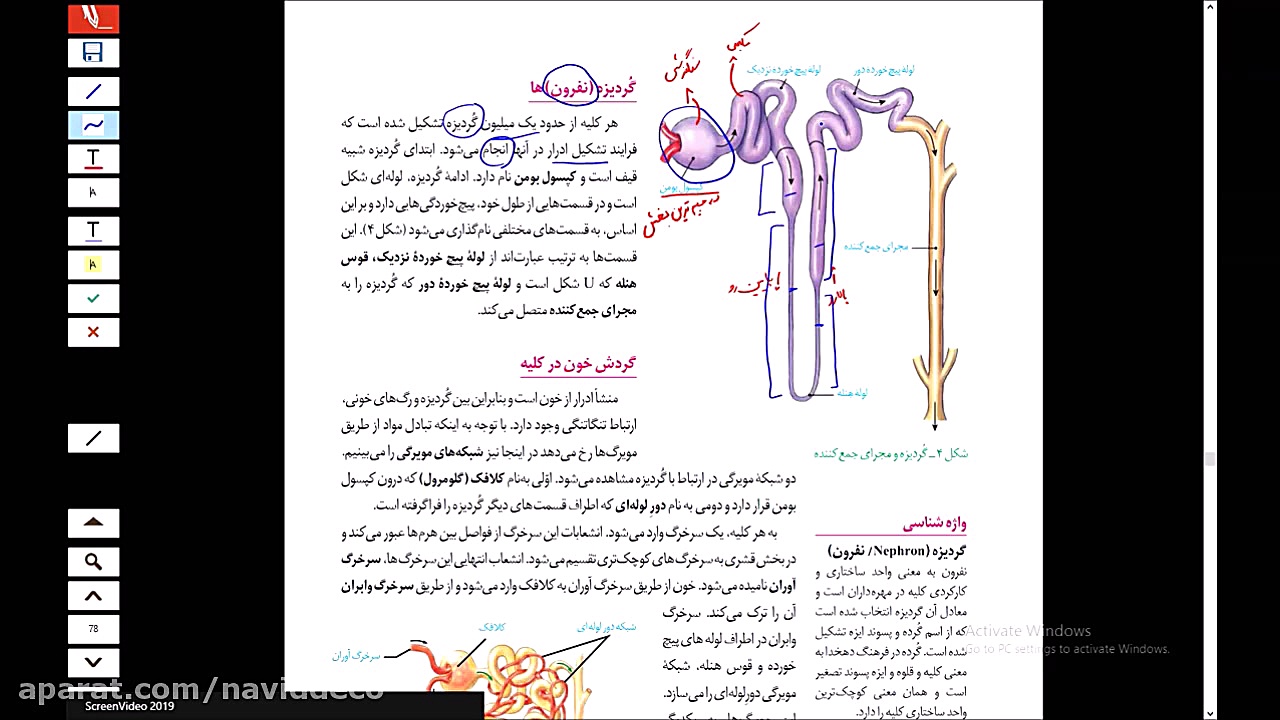 گُردیزه (نفرون) ها
هر کلیه از حدود یک میلیون گُردیزه تشکیل شده است که
فرایند تشکیل ادرار در آنها انجام می‌شود. ابتدای گُردیزه شبیه
قیف است و کپسول بومن نام دارد. ادامهٔ گُردیزه، لوله‌ای شکل
است و در قسمت‌هایی از طول خود، پیچ‌خوردگی‌هایی دارد و بر این
اساس، به قسمت‌های مختلفی نام‌گذاری می‌شود (شکل ۴). این
قسمت‌ها به ترتیب عبارت‌اند از لولهٔ پیچ خوردهٔ نزدیک، قوس
هنله که U شکل است و لولهٔ پیچ خوردهٔ دور که گُردیزه را به
مجرای جمع‌کننده متصل می‌کند.
گردش خون در کلیه
منشأ ادرار از خون است و بنابراین بین گُردیزه و رگ‌های خونی،
ارتباط تنگاتنگی وجود دارد. با توجه به اینکه تبادل مواد از طریق
مویرگ‌ها رخ می‌دهد در اینجا نیز شبکه‌های مویرگی را می‌بینیم.
دو شبکهٔ مویرگی در ارتباط با گُردیزه مشاهده می‌شود. اوّلی به‌نام کلافک (گلومرول) که درون کپسول
بومن قرار دارد و دومی به نام دورِ لوله‌ای که اطراف قسمت‌های دیگر گُردیزه را فراگرفته است.
به هر کلیه، یک سرخرگ وارد می‌شود. انشعابات این سرخرگ از فواصل بین هرم‌ها عبور می‌کند و
در بخش قشری به سرخرگ‌های کوچک‌تری تقسیم می‌شود. انشعاب انتهایی این سرخرگ‌ها، سرخرگ
آوران نامیده می‌شود. خون از طریق سرخرگ آوران به کلافک وارد می‌شود و از طریق سرخرگ وابران
آن را ترک می‌کند. سرخرگ
وابران در اطراف لوله های پیچ
خورده و قوس هنله، شبکهٔ
مویرگی دورلوله‌ای را می‌سازد.
شبکه دور لوله ای
کلافک
سرخرگ آوران
لوله پیچ خورده دور
لوله پیچ خورده نزدیک
کپسول بومن
مجرای جمع کننده
لوله هنله
پایین رو
بالارو
شکل ۴ــ گُردیزه و مجرای جمع کننده
واژه شناسی
گردیزه (Nephron/ نفرون)
نفرون به معنی واحد ساختاری و
کارکردی کلیه در مهره‌داران است و
معادل آن گردیزه انتخاب شده است
که از اسم گرده و پسوند ایزه تشکیل
شده است. گرده در فرهنگ دهخدا به
معنی کلیه و قلوه و ایزه پسوند تصغیر
است و همان معنی کوچک‌ترین
واحد ساختاری کلیه را دارد.
Activate Windows
Go to PC settings to activate Windows.
T
A
T
A
78
aparat.com/naviddeco
ScreenVideo 2019